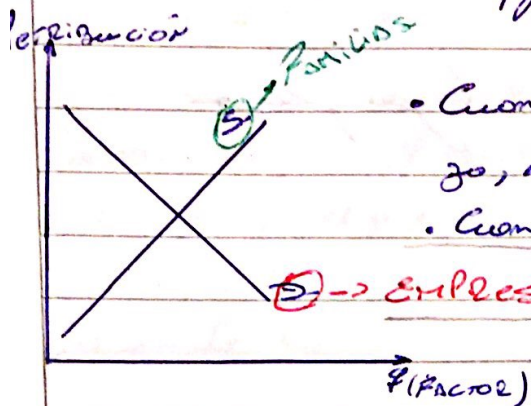 Retribución
S → Familias
• Cuan
zo,
• Cuan
D → EMPRES
F (FACTOR)